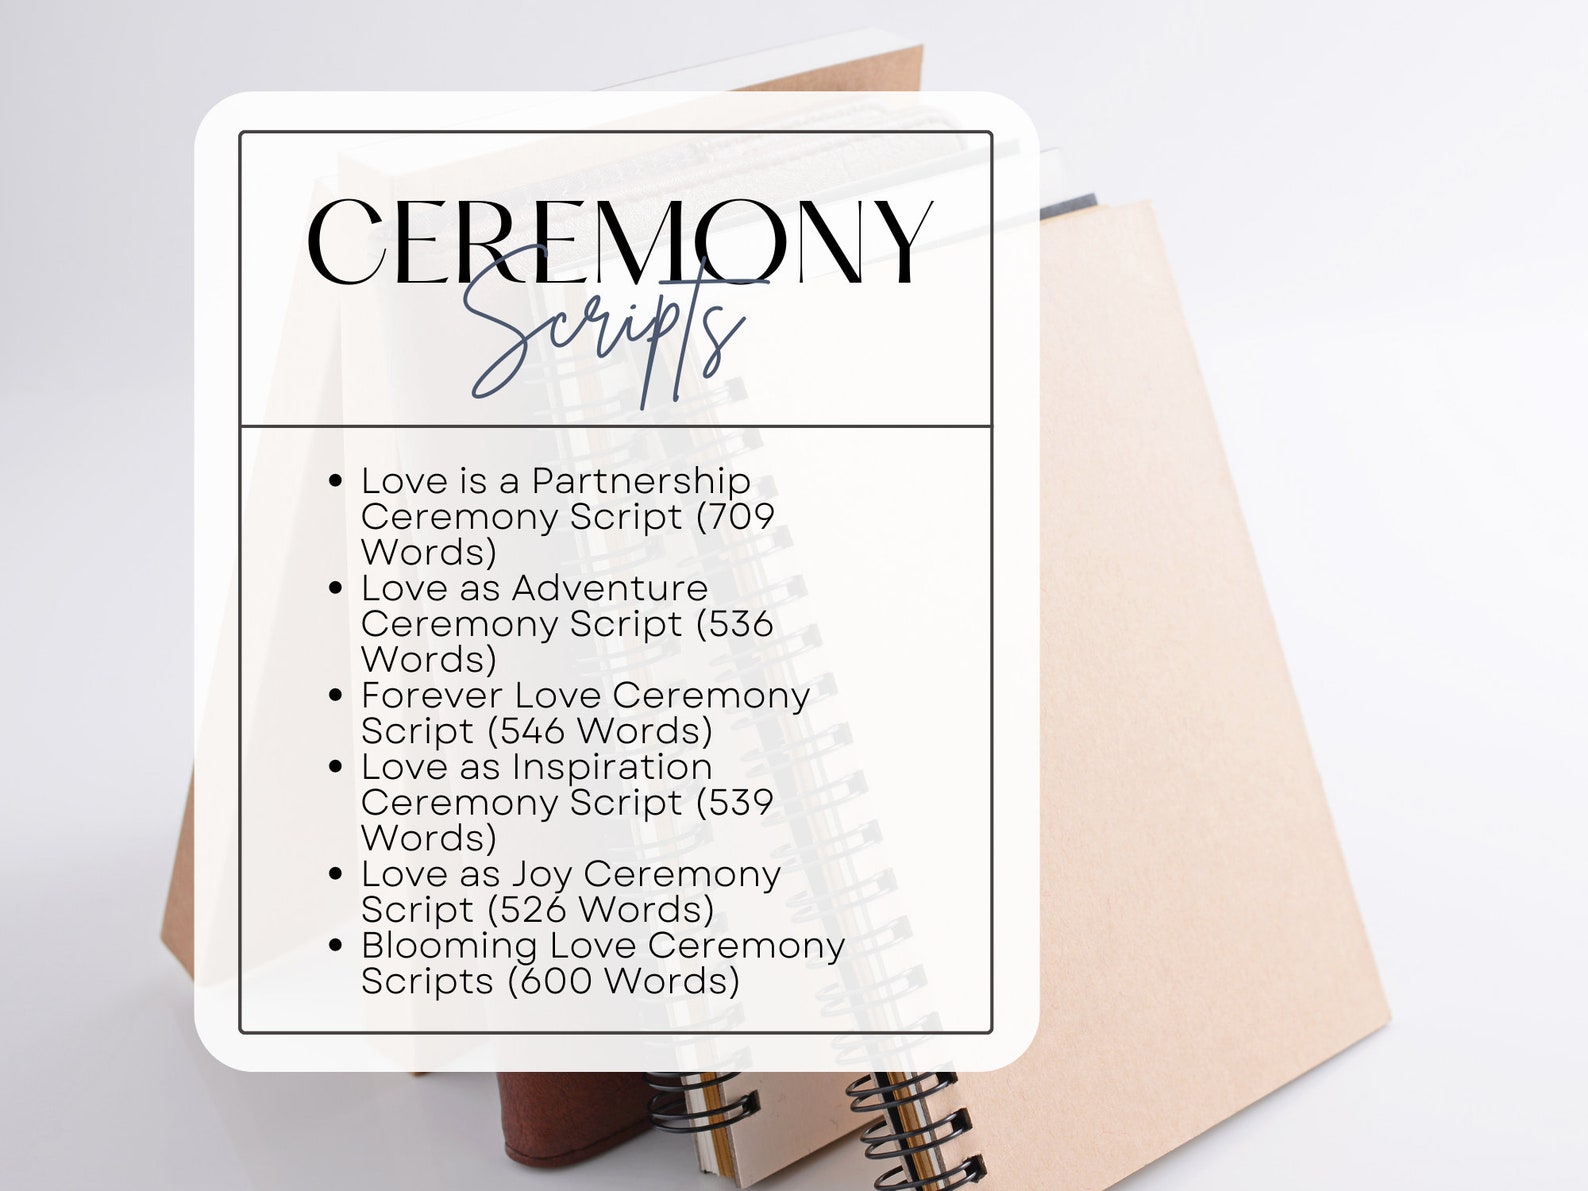 CEREMONY
Scripts
• Love is a Partnership
Ceremony Script (709
Words)
• Love as Adventure
Ceremony Script (536
Words)
• Forever Love Ceremony
Script (546 Words)
• Love as Inspiration
Ceremony Script (539
Words)
• Love as Joy Ceremony
Script (526 Words)
• Blooming Love Ceremony
Scripts (600 Words)